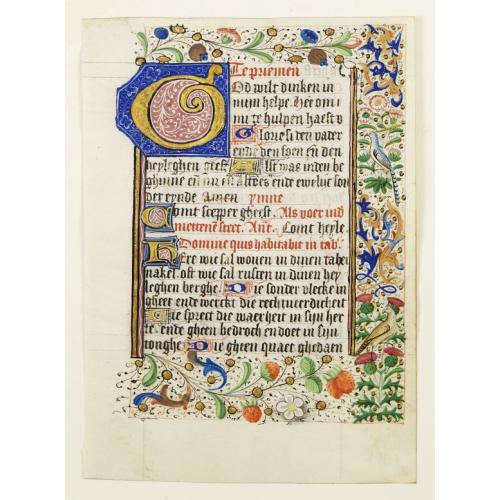 Te priemen
God wilt dinken in
mijn helpe. Here om i
mi te hulpen haest v
Glorie si den vader
ende den soen en̄ den
heyleghen geest Alst was inden be
ghinne en̄ nu en̄ altoes ende ewelijc son
der eynde Amen ymne
Comt scepper gheest. Als voer in d
mettene steet. Ant. Comt heyle
Domine quis habitabit in tab
Here wie sal wonen in dinen taber
nakel. oft wie sal rusten in dinen hey
leghen berghe Die sonder vlecke in
gheet ende werckt die rechtuerdicheit
Die sprect die waerheit in sijn her
te. ende gheen bedroch en doet in sijn
tonghe Die gheen quaet ghedaen